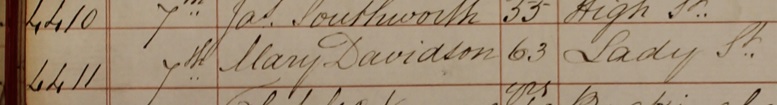 4410 7th Jas. Southworth 55 High St.
4411 7th Mary Davidson 63 Lady St.
yrs